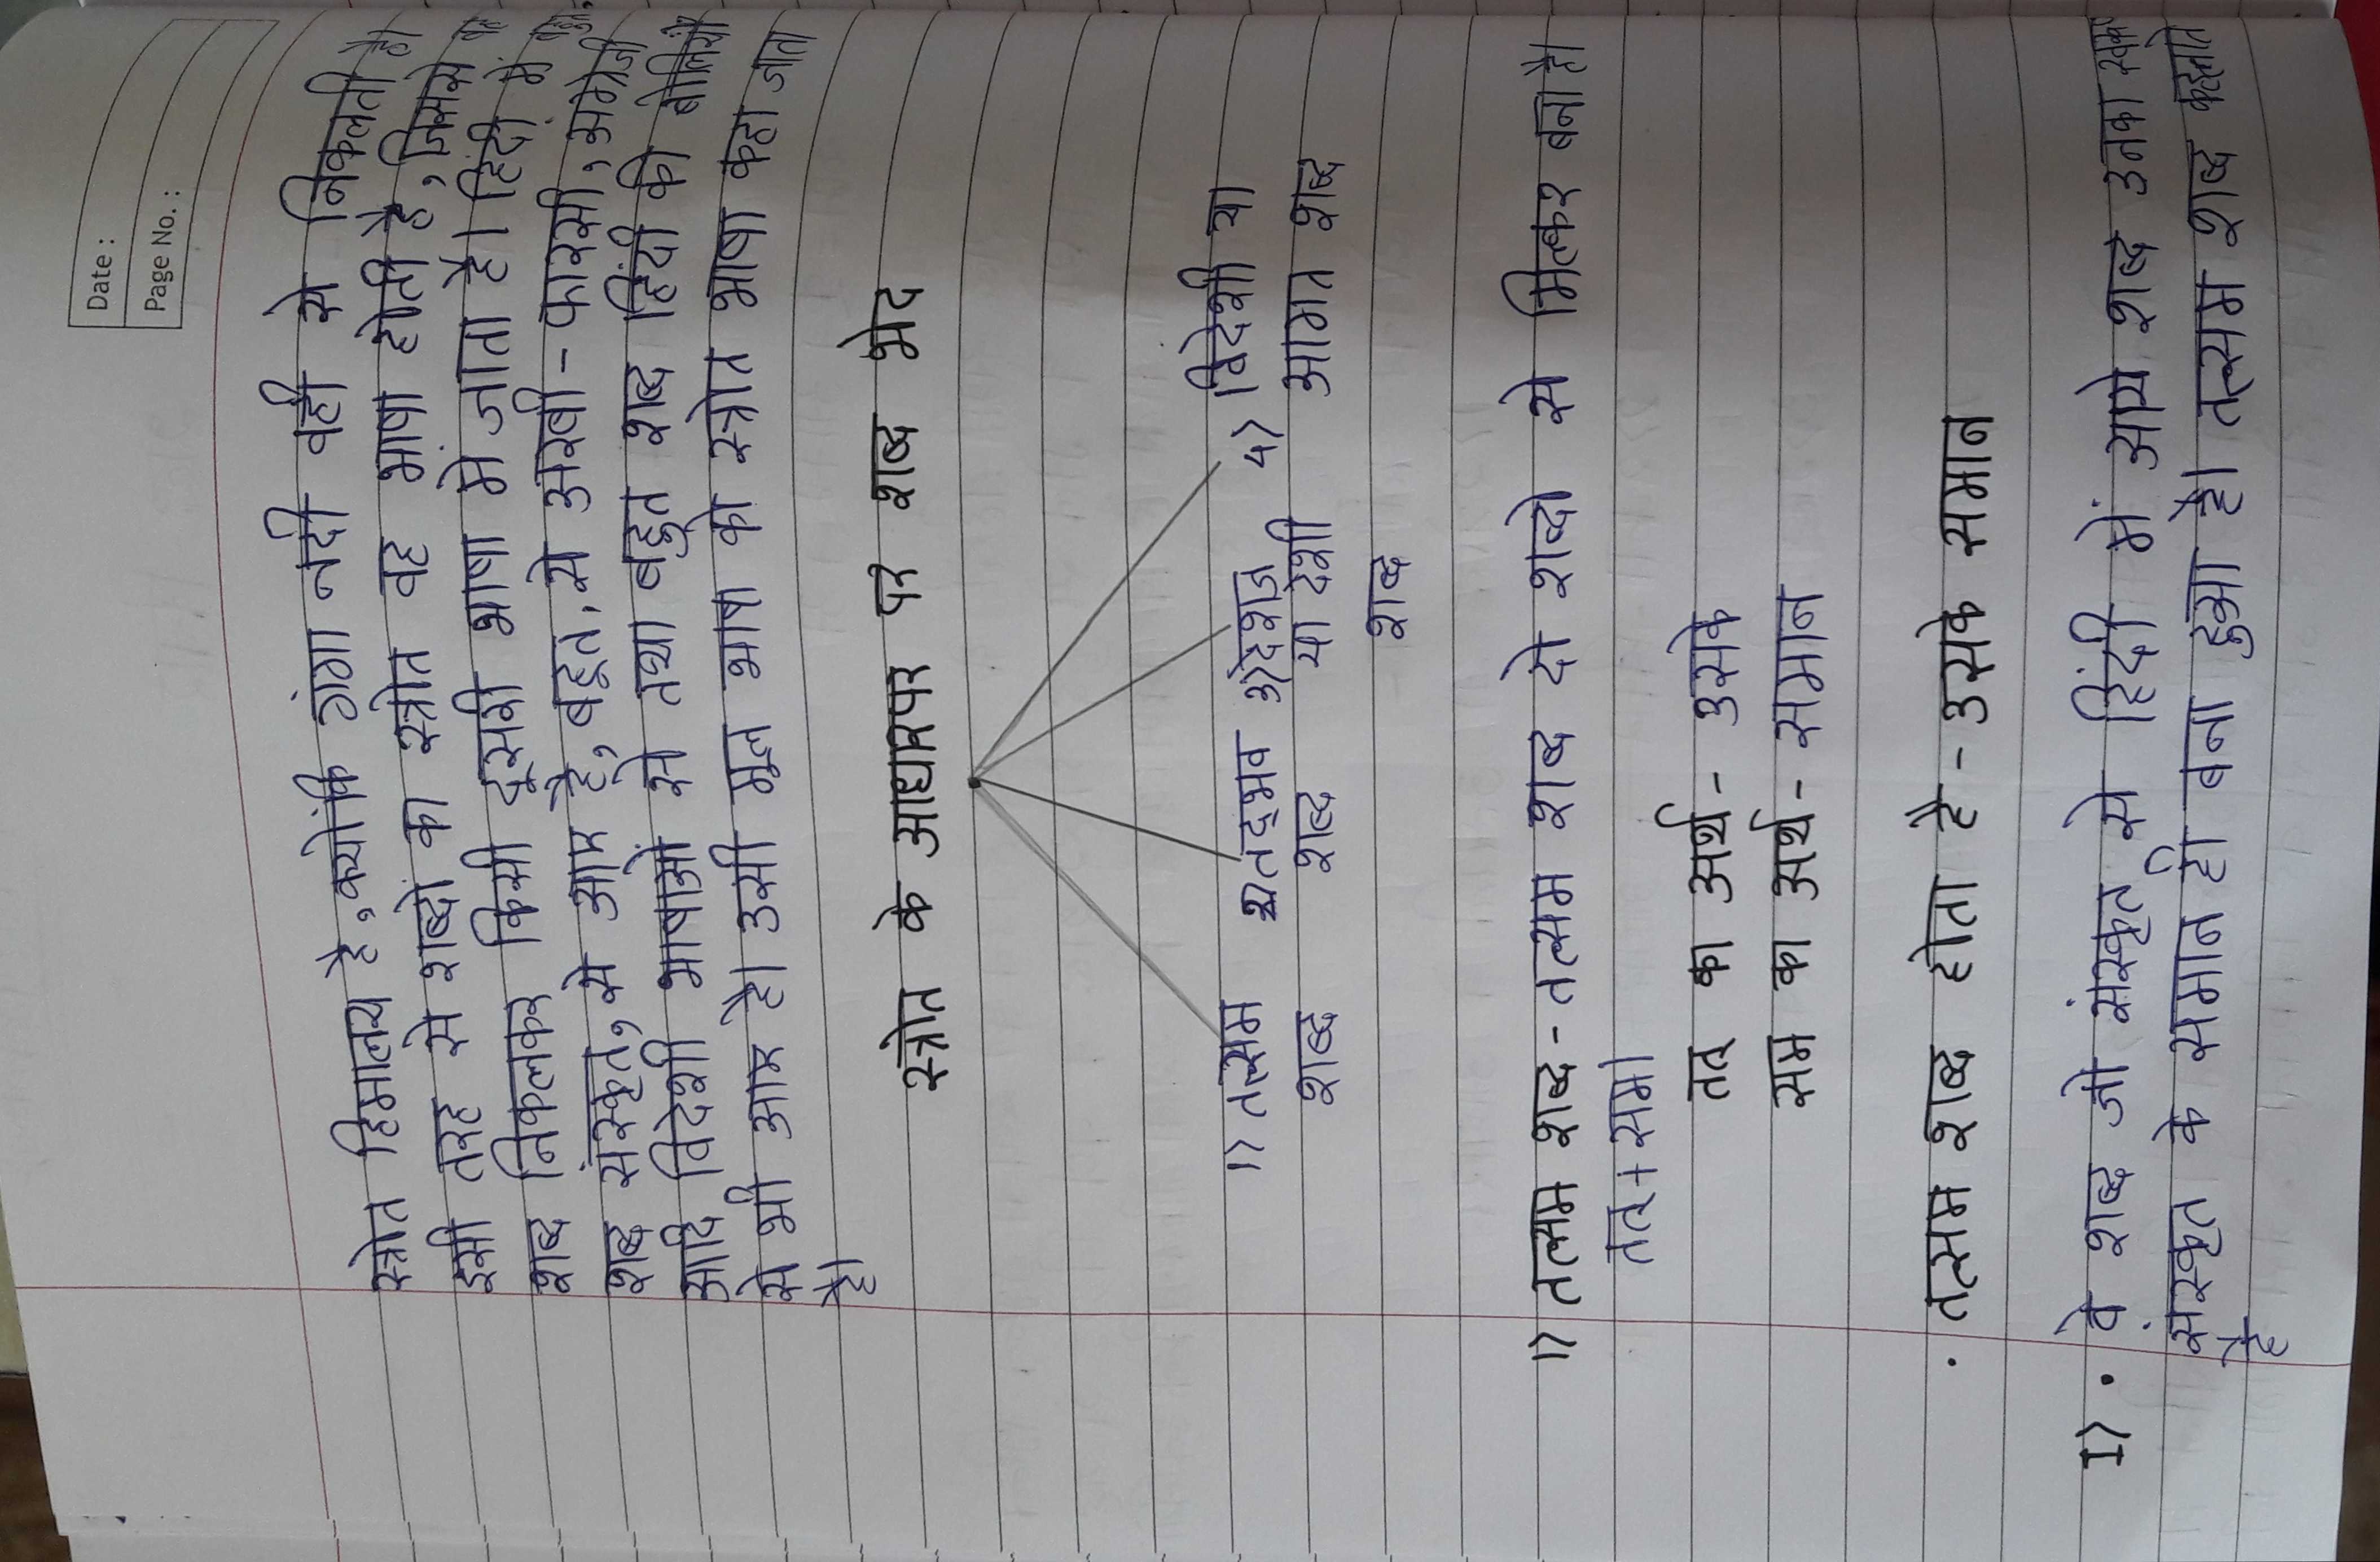 Date :
Page No. :
स्त्रोत हिमालय है, क्योंकि गंगा नदी वही से निकलती है।
इसी तरह से शब्दो का स्त्रोत वह भाषा होती है, जिससे वह
शब्द निकलकर किसी दूसरी भाषा मे जाता है। हिंदी में
शब्द संस्कृत, से आए है, बहुत, से अरबी - फारसी, अंग्रेजी
आदि विदेशी भाषाओं से तथा बहुत शब्द हिंदी की बोलियो
से भी आए है। उसी मूल भाषा को स्त्रोत भाषा कहा जाता
है।
स्त्रोत के आधारपर पर शब्द भेद
1) तत्सम २) तद्भव ३) देशज 4) विदेशी या
शब्द शब्द या देशी आगत शब्द
शब्द
1) तत्सम शब्द - तत्सम शब्द दो शब्दो से मिलकर बना है।
तत् + सम।
तत् का अर्थ - उसके
सम का अर्थ - समान
. तत्सम शब्द होता है - उसके समान
I) . वे शब्द जो संस्कृत से हिंदी में आये शब्द उनका
संस्कृत के समान ही बना हुआ है। तत्सम शब्द कहलाते
है